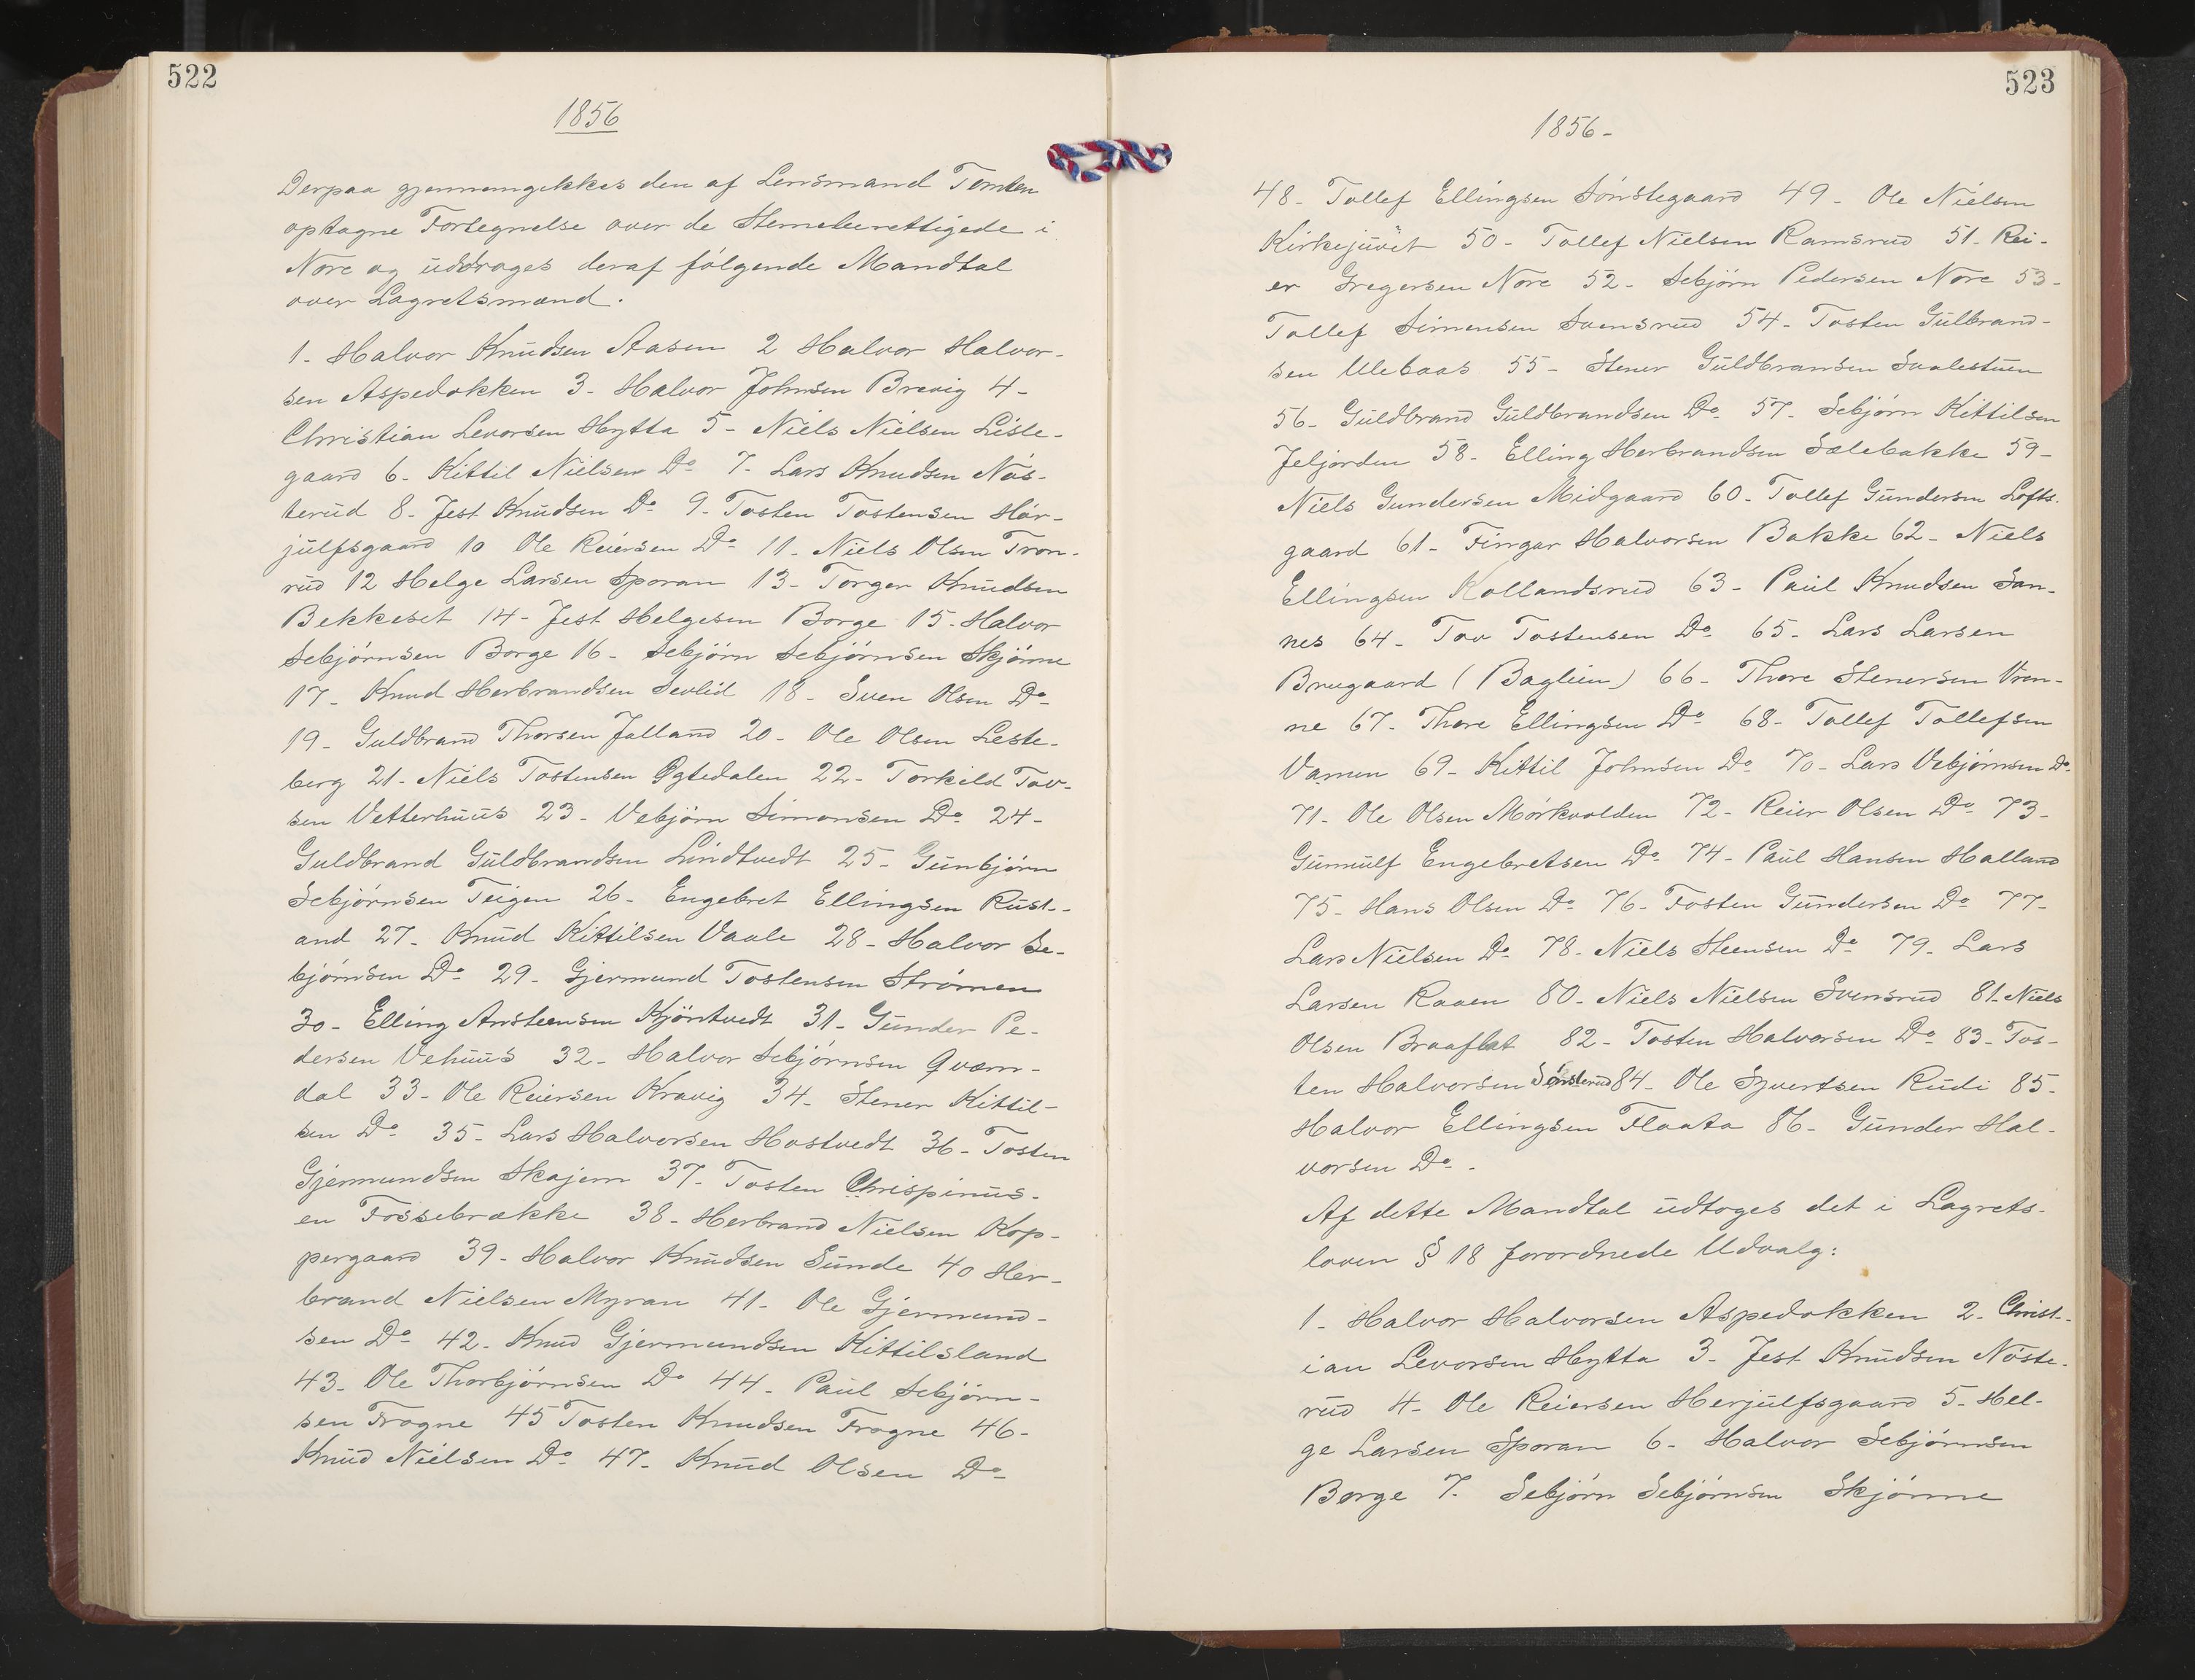 522
1856
Derpaa gjennemgikkes den af Lensmand Tomten
optagne Fortegnelse over de Stemeberettigede i
Nore og uddroges deraf følgende Mandtal
over Lagretsmænd.
1- Halvor Knudsen Aasen 2 Halvor Halvor-
sen Aspedokken 3- Halvor Johnsen Brevig 4-
Christian Levorsen Hytta 5- Niels Nielsen Lisle-
gaard 6- Kittil Nielsen Do 7- Lars Knudsen Nøs-
terud 8- Jest Knudsen Do 9- Tosten Tostensen Hør-
julfsgaard 10 Ole Reiersen Do 11- Niels Olsen Tron-
rud 12 Helge Larsen Sporan 13- Torger Knudsen
Bekkeset 14- Jest Helgesen Borge 15- Halvor
Sebjørnsen Borge 16- Sebjørn Sebjørnsen Skjønne
17- Knud Herbrandsen Sevlid 18- Sven Olsen Do
19- Guldbrand Thorsen Jalland 20- Ole Olsen Leste-
berg 21- Niels Tostensen Øgtedalen 22- Torkild Tov-
sen Vetterhuus 23- Vebjørn Simonsen Do 24-
Guldbrand Guldbrandsen Lindtvedt 25- Gunbjørn
Sebjørnsen Teigen 26- Engebret Ellingsen Rust-
and 27- Knud Kittilsen Vaale 28- Halvor Se-
bjørnsen Do 29- Gjermund Tostensen Strømen
30- Elling Ansteensen Kjøntvedt 31- Gunder Pe-
dersen Vehuus 32- Halvor Sebjørnsen Qværn-
dal 33- Ole Reiersen Kravig 34- Stener Kittil-
sen Do 35- Lars Halvorsen Hostvedt 36- Tosten
Gjermundsen Skajem 37- Tosten Chrispinus-
en Fossebrække 38- Herbrand Nielsen Kop-
pergaard 39- Halvor Knudsen Sunde 40 Her-
brand Nielsen Myran 41- Ole Gjermund-
sen Do 42- Knud Gjermundsen Kittilsland
43- Ole Thorbjørnsen Do 44- Paul Sebjørn-
sen Frogne 45 Tosten Knudsen Frogne 46-
Knud Nielsen Do 47- Knud Olsen Do
523
1856-
48- Tollef Ellingsen Sønstegaard 49- Ole Nielsen
Kirkejuvet 50- Tollef Nielsen Ramsrud 51- Rei-
er Gregersen Nore 52- Sebjørn Pedersen Nore 53-
Tollef Simensen Svensrud 54- Tosten Gulbrand-
sen Ulebaas 55- Stener Guldbransen Svalestuen
56- Guldbrand Guldbrandsen Do 57- Sebjørn Kittilsen
Jeljorden 58- Elling Herbrandsen Sælebakke 59-
Niels Gundersen Midgaard 60- Tollef Gundersen Lofts-
gaard 61- Fingar Halvorsen Bakke 62- Niels
Ellingsen Kollandsrud 63- Paul Knudsen San-
nes 64- Tov Tostensen Do 65- Lars Larsen
Brugaard (Baglien) 66- Thore Stenersen Vren-
ne 67- Thore Ellingsen Do 68- Tollef Tollefsen
Vamen 69- Kittil Johnsen Do 70- Lars Vebjørnsen Do
71- Ole Olsen Mørkvolden 72- Reier Olsen Do 73-
Gunnulf Engebretsen Do 74- Paul Hansen Halland
75- Hans Olsen Do 76- Tosten Gundersen Do 77-
Lars Nielsen Do 78- Niels Steensen Do 79- Lars
Larsen Raaen 80- Niels Nielsen Svensrud 81- Niels
Olsen Braaflat 82- Tosten Halvorsen Do 83- Tos-
ten Halvorsen Sønsterud 84- Ole Syvertsen Rudi 85-
Halvor Ellingsen Flaata 86- Gunder Hal-
vorsen Do -
Af dette Mandtal udtoges det i Lagrets-
loven § 18 forordnede Udvalg:
1- Halvor Halvorsen Aspedokken 2- Christ-
ian Levorsen Hytta 3- Jest Knudsen Nøste-
rud 4- Ole Reiersen Herjulfsgaard 5- Hel-
ge Larsen Sporan 6- Halvor Sebjørnsen
Borge 7- Sebjørn Sebjørnsen Skjønne